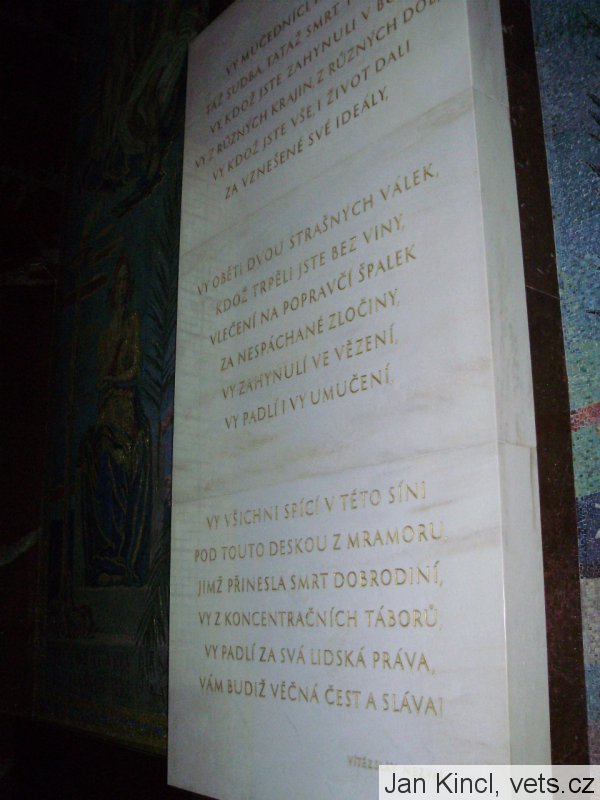 VY MUČEDNÍCI
TÁŽ SUDBA, TATÁŽ SMRT,
VY KDOŽ JSTE ZAHYNULI V
VY Z RŮZNÝCH KRAJIN, Z RŮZNÝCH
VY KDOŽ JSTE VŠE, I ŽIVOT DALI
ZA VZNEŠENÉ SVÉ IDEÁLY,
VY OBĚTI DVOU STRAŠNÝCH VÁLEK,
KDOŽ TRPĚLI JSTE BEZ VINY,
VLEČENI NA POPRAVČÍ ŠPALEK
ZA NESPÁCHANÉ ZLOČINY,
VY ZAHYNULÍ VE VĚZENÍ,
VY PADLÍ I VY UMUČENÍ,
VY VŠICHNI SPÍCÍ V TÉTO SÍNI
POD TOUTO DESKOU Z MRAMORU,
JIMŽ PŘINESLA SMRT DOBRODINÍ,
VY Z KONCENTRAČNÍCH TÁBORŮ,
VY PADLÍ ZA SVÁ LIDSKÁ PRÁVA,
VÁM BUDIŽ VĚČNÁ ČEST A SLÁVA!
Jan Kincl, vets.cz